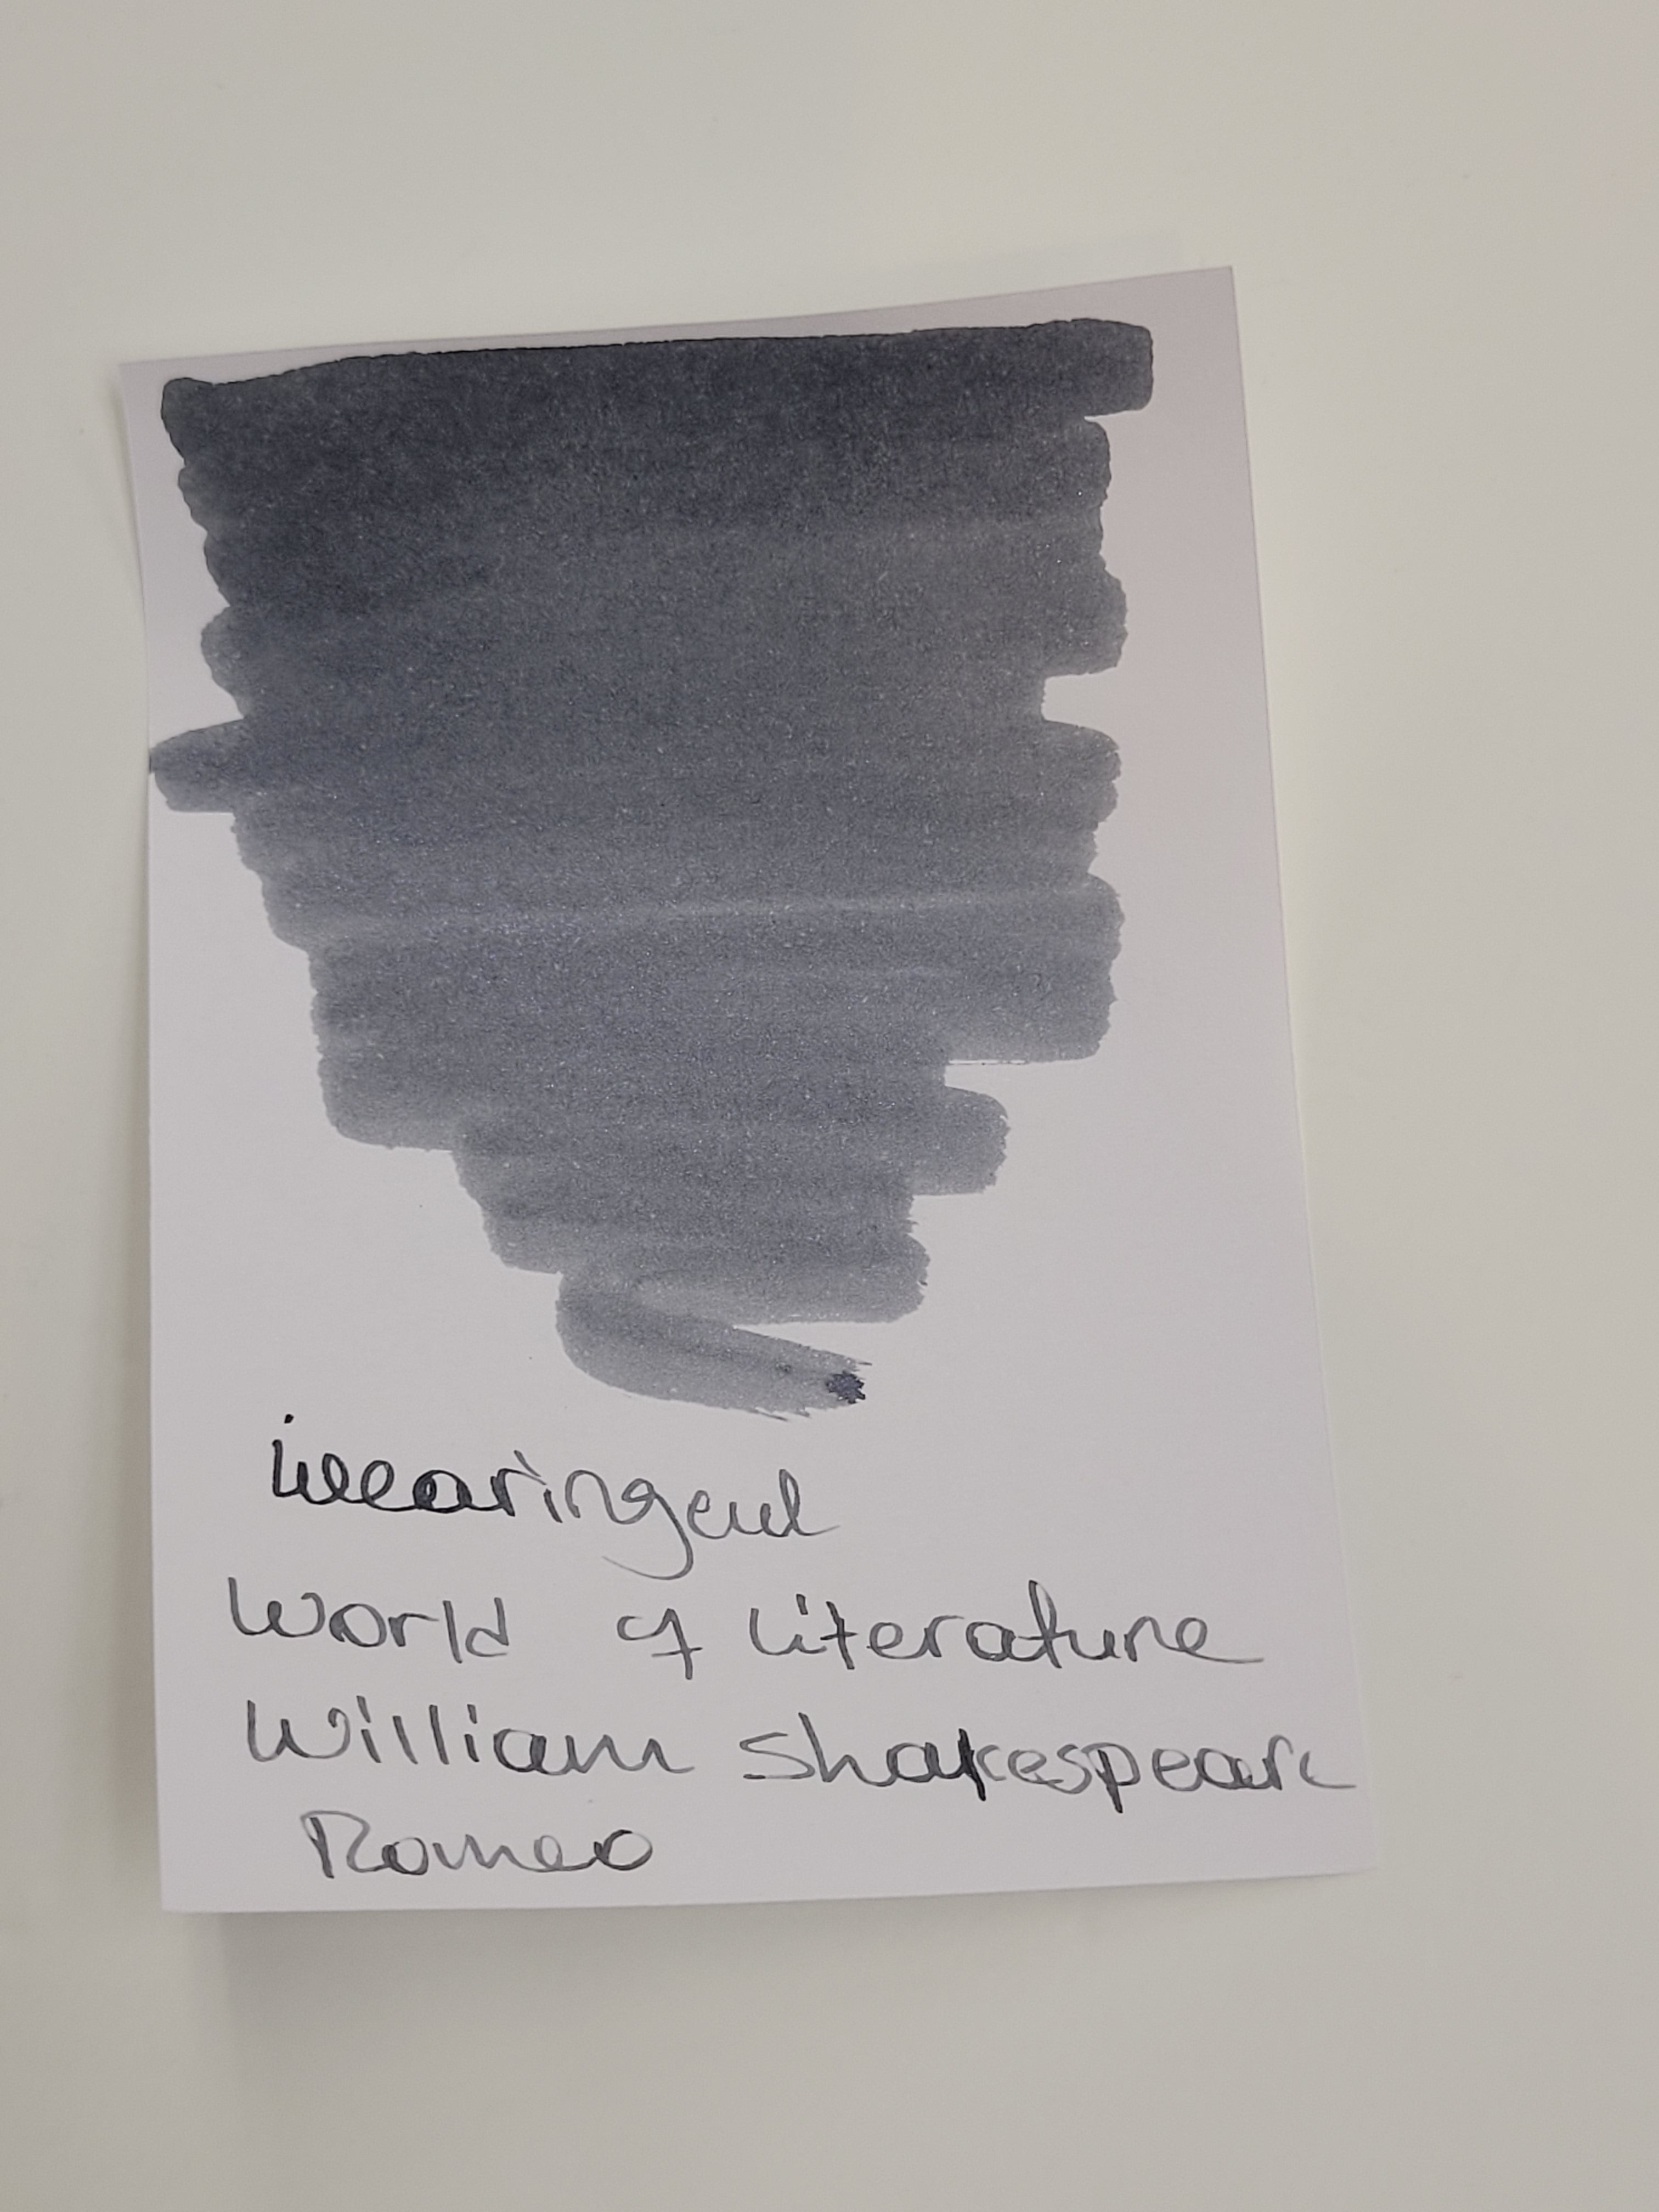 wearingeul
World of Literature
William Shakespeare
Romeo